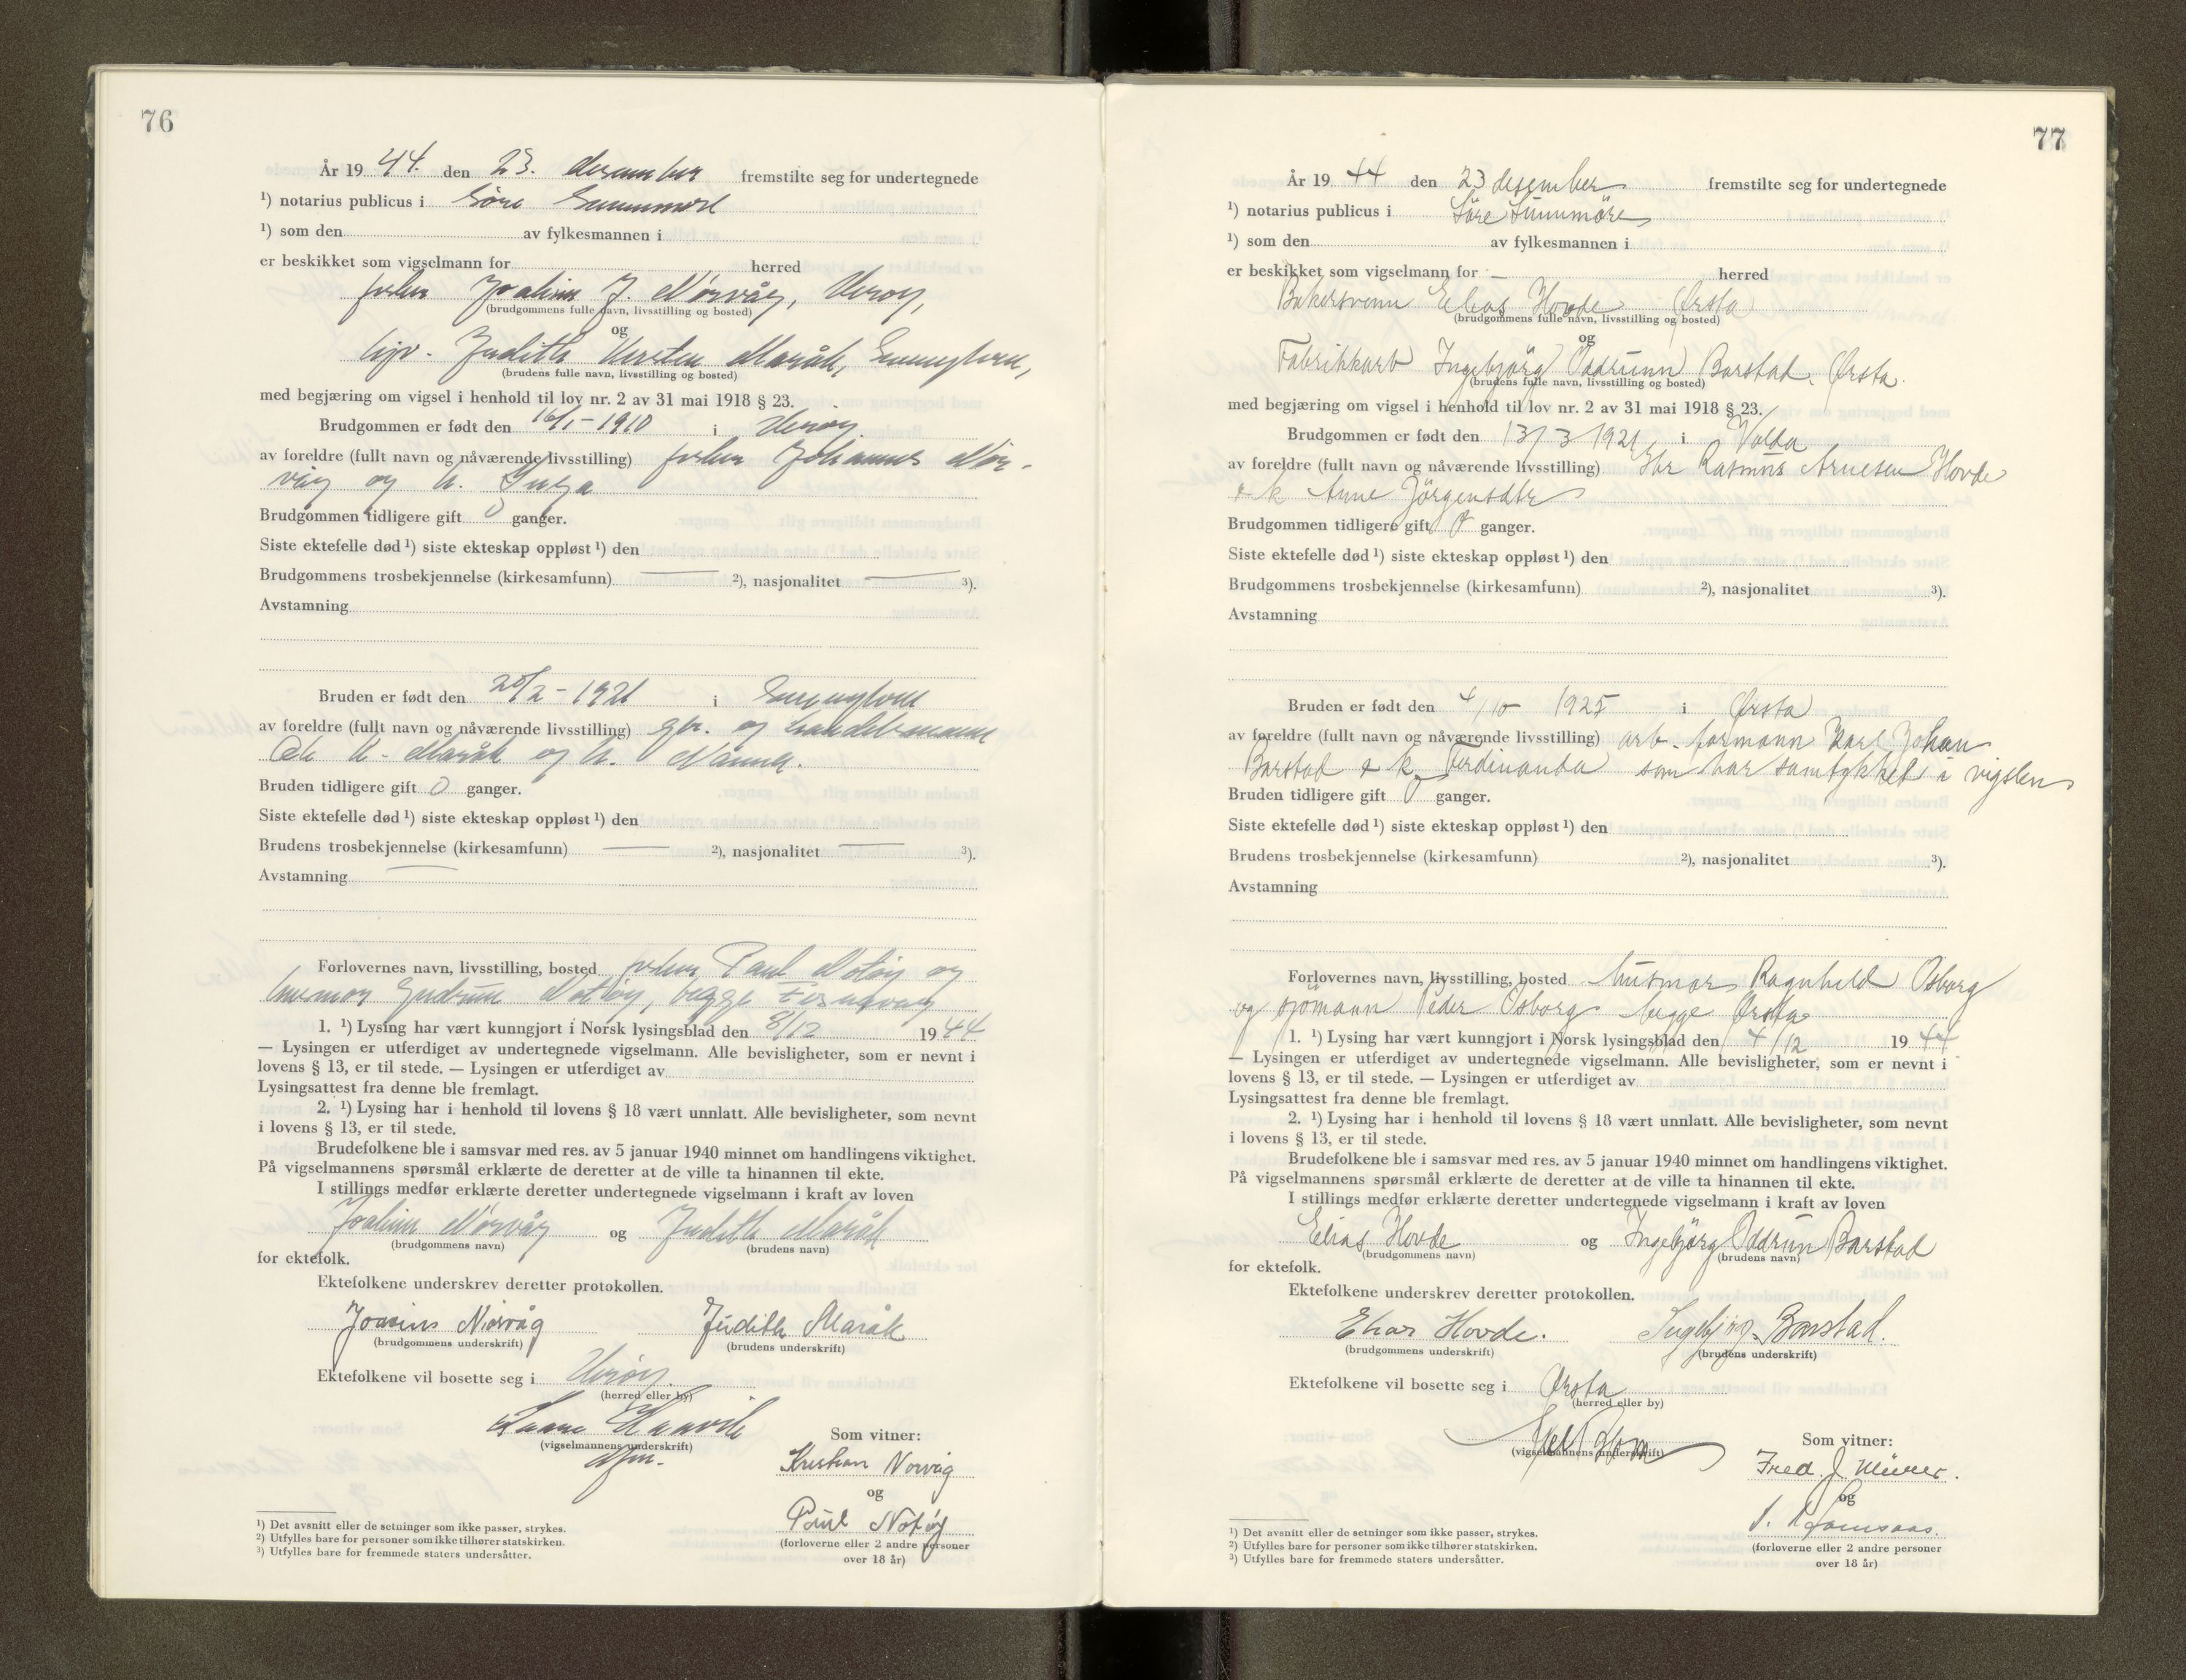 76
År 1944. den 23. desember fremstilte seg for undertegnede
¹) notarius publicus i Søre Sunnmøre
¹) som den av fylkesmannen i
er beskikket som vigselmann for herred
fisker Joakim J. Nørvåg, Herøy,
(brudgommens fulle navn, livsstilling og bosted)
og
Judith Kirsten Maråk,
(brudens fulle navn, livsstilling og bosted)
med begjæring om vigsel i henhold til lov nr. 2 av 31 mai 1918 § 23.
Brudgommen er født den 16/1-1910 i Herøy
av foreldre (fullt navn og nåværende livsstilling) fisker Johannes Nør-
våg og h. Inga
Brudgommen tidligere gift 0 ganger.
Siste ektefelle død ¹) siste ekteskap oppløst ¹) den
Brudgommens trosbekjennelse (kirkesamfunn) — ²), nasjonalitet — ³).
Avstamning
Bruden er født den 20/2-1921 i
av foreldre (fullt navn og nåværende livsstilling) gbr. og handelsmann
Ole K. Maråk og h. Nanna.
Bruden tidligere gift 0 ganger.
Siste ektefelle død ¹) siste ekteskap oppløst ¹) den
Brudens trosbekjennelse (kirkesamfunn) — ²), nasjonalitet — ³).
Avstamning —
Forlovernes navn, livsstilling, bosted fisker Paul Notøy og
husmor Gudrun Notøy, begge Fosnavåg
1. ¹) Lysing har vært kunngjort i Norsk lysingsblad den 8/12 1944
— Lysingen er utferdiget av undertegnede vigselmann. Alle bevisligheter, som er nevnt i
lovens § 13, er til stede. — Lysingen er utferdiget av
Lysingsattest fra denne ble fremlagt.
2. ¹) Lysing har i henhold til lovens § 18 vært unnlatt. Alle bevisligheter, som nevnt
i lovens § 13, er til stede.
Brudefolkene ble i samsvar med res. av 5 januar 1940 minnet om handlingens viktighet.
På vigselmannens spørsmål erklærte de deretter at de ville ta hinannen til ekte.
I stillings medfør erklærte deretter undertegnede vigselmann i kraft av loven
Joakim Nørvåg og Judith Maråk
(brudgommens navn) (brudens navn)
for ektefolk.
Ektefolkene underskrev deretter protokollen.
Joakim Nørvåg Judith Maråk
(brudgommens underskrift) (brudens underskrift)
Ektefolkene vil bosette seg i Herøy.
(herred eller by)
(vigselmannens underskrift)
Som vitner:
Kristian Nørvåg
og
Paul Notøy
(forloverne eller 2 andre personer
over 18 år)
¹) Det avsnitt eller de setninger som ikke passer, strykes.
²) Utfylles bare for personer som ikke tilhører statskirken.
³) Utfylles bare for fremmede staters undersåtter.
77
År 1944 den 23 desember fremstilte seg for undertegnede
¹) notarius publicus i Søre Sunnmøre
¹) som den av fylkesmannen i
er beskikket som vigselmann for — herred
Bakersvenn Elias Hovde Ørsta
(brudgommens fulle navn, livsstilling og bosted)
og
Fabrikkarb Ingebjörg Oddrunn Barstad, Ørsta.
(brudens fulle navn, livsstilling og bosted)
med begjæring om vigsel i henhold til lov nr. 2 av 31 mai 1918 § 23.
Brudgommen er født den 13/3 1921 i Volda
av foreldre (fullt navn og nåværende livsstilling) Gbr Rasmus Arnesen Hovde
& k Anne Jörgensdtr
Brudgommen tidligere gift 0 ganger.
Siste ektefelle død ¹) siste ekteskap oppløst ¹) den
Brudgommens trosbekjennelse (kirkesamfunn) ²), nasjonalitet ³).
Avstamning
Bruden er født den 4/10 1925 i Ørsta
av foreldre (fullt navn og nåværende livsstilling) arb.formann Karl Johan
Barstad & k Ferdinanda som har samtykket i vigslen
Bruden tidligere gift 0 ganger.
Siste ektefelle død ¹) siste ekteskap oppløst ¹) den
Brudens trosbekjennelse (kirkesamfunn) ²), nasjonalitet ³).
Avstamning
Forlovernes navn, livsstilling, bosted husmor Ragnhild Osborg
og sjømann Peder Osborg begge Ørsta
1. ¹) Lysing har vært kunngjort i Norsk lysingsblad den 4/12 1944
— Lysingen er utferdiget av undertegnede vigselmann. Alle bevisligheter, som er nevnt i
lovens § 13, er til stede. — Lysingen er utferdiget av
Lysingsattest fra denne ble fremlagt.
2. ¹) Lysing har i henhold til lovens § 18 vært unnlatt. Alle bevisligheter, som nevnt
i lovens § 13, er til stede.
Brudefolkene ble i samsvar med res. av 5 januar 1940 minnet om handlingens viktighet.
På vigselmannens spørsmål erklærte de deretter at de ville ta hinannen til ekte.
I stillings medfør erklærte deretter undertegnede vigselmann i kraft av loven
Elias Hovde og Ingebjörg Oddrun Barstad
(brudgommens navn) (brudens navn)
for ektefolk.
Ektefolkene underskrev deretter protokollen.
Elias Hovde. Ingebjörg Barstad.
(brudgommens underskrift) (brudens underskrift)
Ektefolkene vil bosette seg i Ørsta
(herred eller by)
(vigselmannens underskrift)
Som vitner:
Fred. J.
og
(forloverne eller 2 andre personer
over 18 år)
¹) Det avsnitt eller de setninger som ikke passer, strykes.
²) Utfylles bare for personer som ikke tilhører statskirken.
³) Utfylles bare for fremmede staters undersåtter.